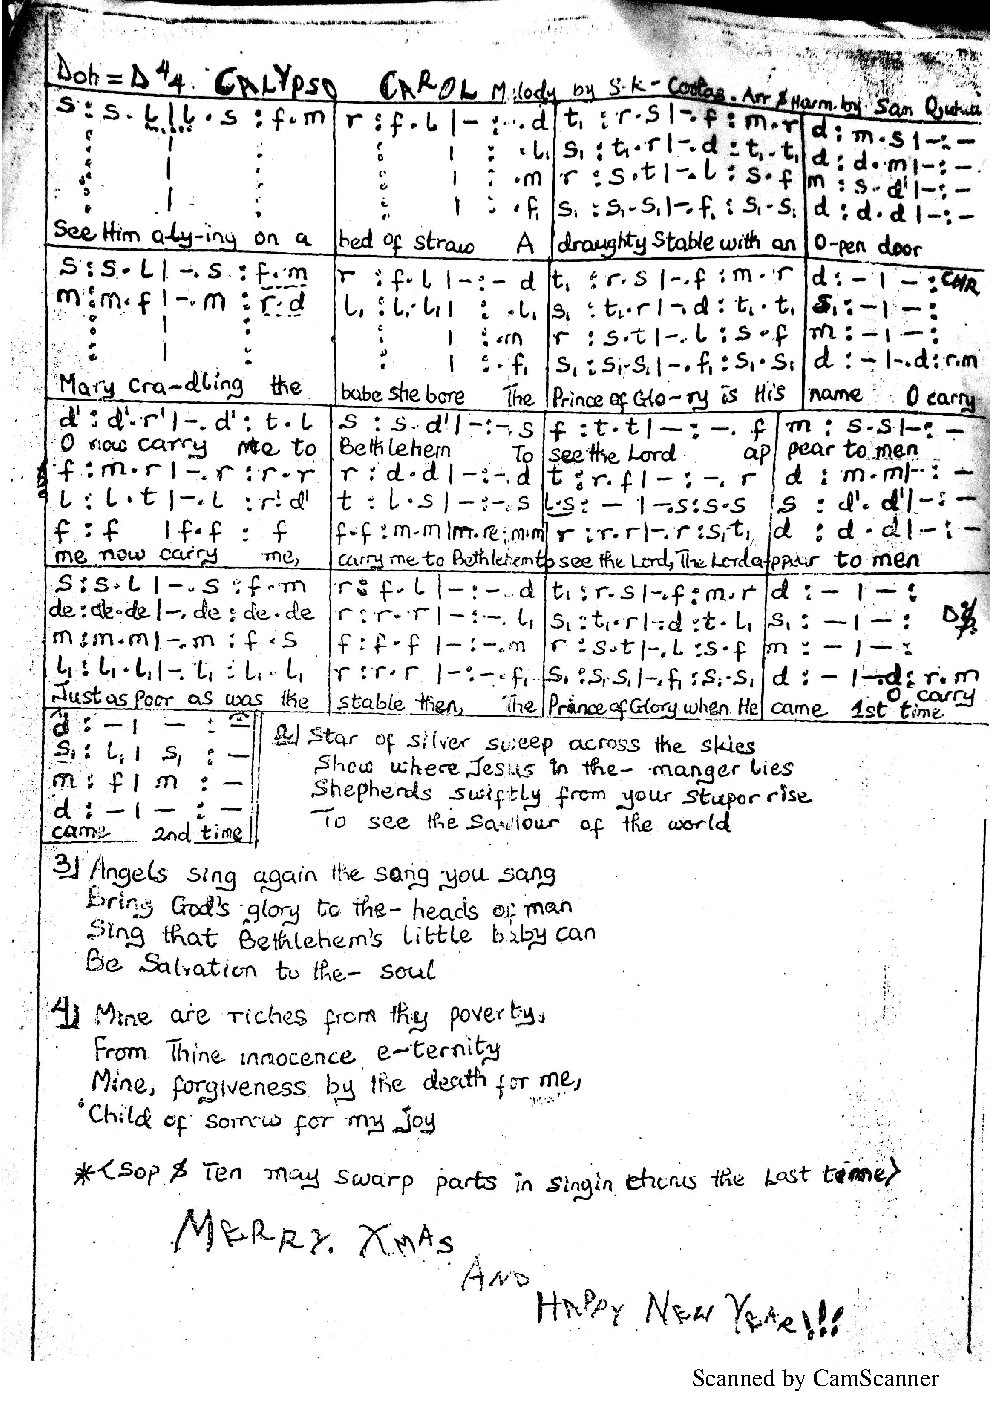 Doh = D 4/4 CALYPSO CAROL Melody by S.K - Costas. Arr & Harm. by San
s : s . l | l . s : f . m | r : f . l | - : - . d | t₁ : r . s | - . f : m . r | d : m . s | - : -
. l₁ | s₁ : t₁ . r | - . d : t₁ . t₁ | d : d . m | - : -
. m | r : s . t | - . l : s . f | m : s . d' | - : -
. f₁ | s₁ : s₁ . s₁ | - . f₁ : s₁ . s₁ | d : d . d | - : -
See Him a-ly-ing on a | bed of straw A | draughty Stable with an | O-pen door
s : s . l | - . s : f . m | r : f . l | - : - . d | t₁ : r . s | - . f : m . r | d : - | - : CHR
m : m . f | - . m : r . d | l₁ : l₁ . l₁ | : . l₁ | s₁ : t₁ . r | - . d : t₁ . t₁ | s₁ : - | - :
: . m | r : s . t | - . l : s . f | m : - | - :
: . f₁ | s₁ : s₁ . s₁ | - . f₁ : s₁ . s₁ | d : - | - . d : r . m
Mary Cra-dling the | babe she bore The | Prince of Glo-ry is His | name O carry
d' : d' . r' | - . d' : t . l | s : s . d' | - : - . s | f : t . t | - : - . f | m : s . s | - : -
O now carry me to | Bethlehem To | see the Lord ap | pear to men
f : m . r | - . r : r . r | r : d . d | - : - . d | t : r . f | - : - . r | d : m . m | - : -
l : l . t | - . l : r . d' | t : l . s | - : - . s | l . s : - | - . s : s . s | s : d' . d' | - : -
f : f | f . f : f | f . f : m . m | m . re : m . m | r : r . r | - . r : s₁ t₁ | d : d . d | - : -
me now carry me, | carry me to Bethlehem to | see the Lord, The Lord ap | pear to men
s : s . l | - . s : f . m | r : f . l | - : - . d | t₁ : r . s | - . f : m . r | d : - | - :
de : de . de | - . de : de . de | r : r . r | - : - . l₁ | s₁ : t₁ . r | - . d : t . l₁ | s₁ : - | - :
m : m . m | - . m : f . s | f : f . f | - : - . m | r : s . t | - . l : s . f | m : - | - :
l₁ : l₁ . l₁ | - . l₁ : l₁ . l₁ | r : r . r | - : - . f₁ | s₁ : s₁ . s₁ | - . f₁ : s₁ . s₁ | d : - | - . d : r . m
O carry
Just as Poor as was the | stable then, The | Prince of Glory when He | came 1st time
d : - | - : -
s₁ : l₁ | s₁ : -
m : f | m : -
d : - | - : -
came 2nd time
2) Star of silver sweep across the skies
Show where Jesus in the- manger lies
Shepherds swiftly from your stupor rise
To see the Saviour of the world
3) Angels sing again the song you sang
Bring God's glory to the- heads of man
Sing that Bethlehem's little baby can
Be Salvation to the- soul
4) Mine are riches from thy poverty,
From Thine innocence e-ternity
Mine, forgiveness by the death for me,
Child of sorrow for my joy
*<Sop & Ten may swarp parts in singin chorus the last time>
MERRY. XMAS
AND
HAPPY NEW YEAR!!!
Scanned by CamScanner